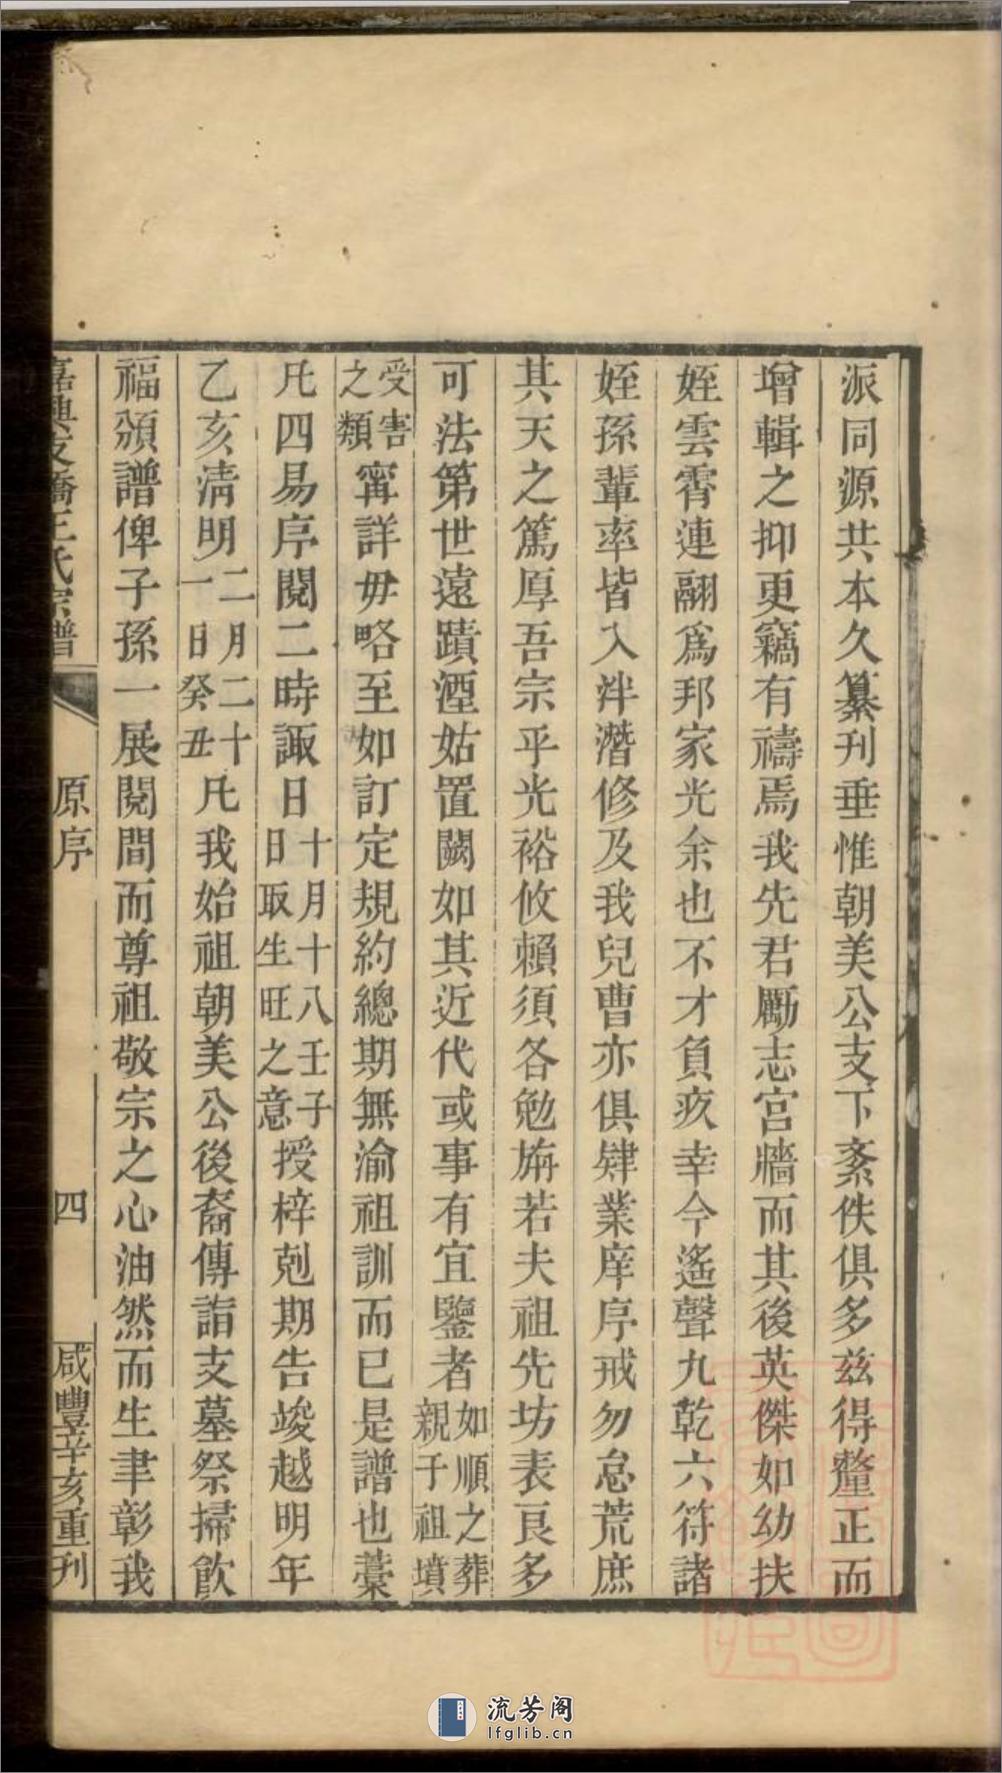 派同源共本久纂刊垂惟朝美公支下紊佚俱多兹得釐正而
增輯之抑更竊有禱焉我先君勵志宫牆而其後英傑如幼扶
姪雲霄連翩爲邦家光余也不才負疚幸今遙聲九乾六符諸
姪孫輩率皆入泮潛修及我兒曹亦俱肄業庠序戒勿怠荒庶
其天之篤厚吾宗乎光裕攸賴須各勉旃若夫祖先坊表良多
可法第世遠蹟湮姑置闕如其近代或事有宜鑒者如順之葬親子祖墳
受害之類甯詳毋略至如訂定規約總期無渝祖訓而已是譜也藁
凡四易序閱二時諏日十月十八壬子日取生旺之意授梓剋期告竣越明年
乙亥清明二月二十一日癸丑凡我始祖朝美公後裔傳詣支墓祭掃飲
福頒譜俾子孫一展閱間而尊祖敬宗之心油然而生聿彰我
嘉興支橋王氏宗譜 原序 四 咸豐辛亥重刊
流芳阁
lfglib.cn